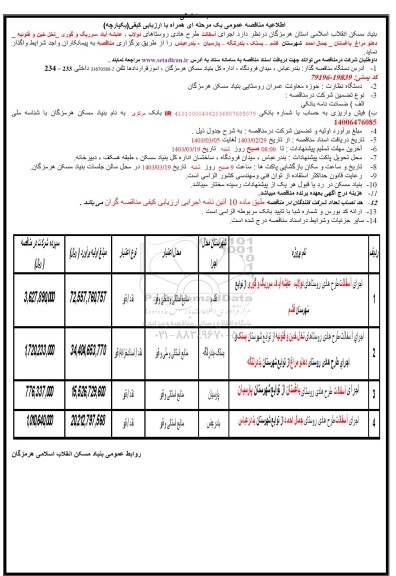 اطلاعیه مناقصه عمومی یک مرحله ای همراه با ارزیابی کیفی(یکپارچه)
بنیاد مسکن انقلاب اسلامی استان هرمزگان درنظر دارد اجرای آسفالت طرح هادی روستاهای دولاب ، عیشه آباد ،سرریگ و گوری ، نخل جین و قنونیه _
دهنو مراغ باغستان _ جمال احمد شهرستان قشم _ بستک ، بندرلنگه _ پارسیان _ بندرعباس را از طریق برگزاری مناقصه به پیمانکاران واجد شرایط واگذار
نماید.
داوطلبان شرکت درمناقصه می توانند جهت دریافت اسناد مناقصه به سامانه ستاد به آدرس www.setadiran.ir مراجعه نمایند .
1- آدرس دستگاه مناقصه گذار: بندرعباس ، میدان فرودگاه ، اداره کل بنیاد مسکن هرمزگان ، امور قراردادها تلفن داخلی 233 - 234
کد پستی: 19839-79196
2- دستگاه نظارت : حوزه معاونت عمران روستایی بنیاد مسکن هرمزگان
3- نوع تضمین شرکت در مناقصه :
الف ) ضمانت نامه بانکی
ب) فیش واریزی به حساب با شماره بانکی IR بانک مرکزی به نام بنیاد مسکن هرمزگان با شناسه ملی
14006476085
4- مبلغ برآورد اولیه و تضمین شرکت درمناقصه : به شرح جدول ذیل .
5- تاریخ دریافت اسناد مناقصه : از تاریخ 1403/02/29 لغایت 1403/03/05
6- آخرین مهلت تسلیم پیشنهادات : تا 08:00 صبح روز شنبه تاریخ 1403/03/19
7- محل تحویل پاکت پیشنهادات : بندرعباس ، میدان فرودگاه ، ساختمان اداره کل بنیاد مسکن ، طبقه همکف ، دبیرخانه.
8- تاریخ و ساعت و مکان بازگشایی پاکت ها : ساعت 9 صبح روز شنبه تاریخ 1403/03/19 در محل سالن جلسات بنیاد مسکن هرمزگان.
9- رعایت قانون حداکثر استفاده از توان فنی ومهندسی کشور الزامی است.
10- بنیاد مسکن در رد یا قبول هر یک از پیشنهادات رسیده مختار میباشد.
11- هزینه درج آگهی بعهده برنده مناقصه میباشد.
12- حد نصاب تعداد شرکت کنندگان در مناقصه طبق ماده 10 آئین نامه اجرایی ارزیابی کیفی مناقصه گران می باشد .
13- ارائه کد بورس و شماره شبا با تایید بانک مربوطه الزامی است .
14- سایر جزئیات وشرایط در اسناد مناقصه درج شده است.
ردیف نام پروژه شهرستان محل اجرا محل اعتبار نوع اعتبار مبلغ اولیه برآورد ( ریال) سپرده شرکت در مناقصه ( ریال)
1 اجرای آسفالت طرح هادی روستاهای دولاب، عیشه آباد، سرریگ و گوری از توابع شهرستان قشم قشم 72,557,760,757 3,627,890,000
2 اجرای آسفالت طرح هادی روستاهای نخل جین و قنونیه از توابع شهرستان بستک و اجرای طرح هادی روستای دهنو مراغ از توابع شهرستان بندرلنگه بستک، بندرلنگه 34,404,653,770 1,720,233,000
3 اجرای آسفالت طرح هادی روستای باغستان از توابع شهرستان پارسیان پارسیان 776,337,000
4 اجرای آسفالت طرح هادی روستای جمال احمد از توابع شهرستان بندرعباس بندرعباس 20,212,797,568 1,010,640,000
روابط عمومی بنیاد مسکن انقلاب اسلامی هرمزگان